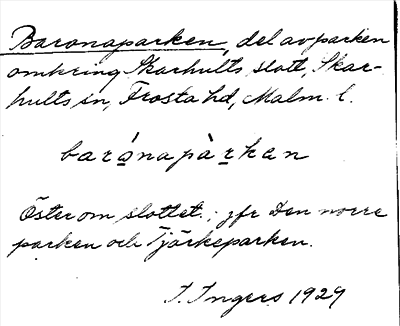 Baronaparken, del av parken
omkring Skarhults slott, Skar-
hults sn, Frosta hd, Malm. l.
barónapàrken
Öster om slottet.; jfr Den norre
parken och Tjärkeparken.
I. Ingers 1929